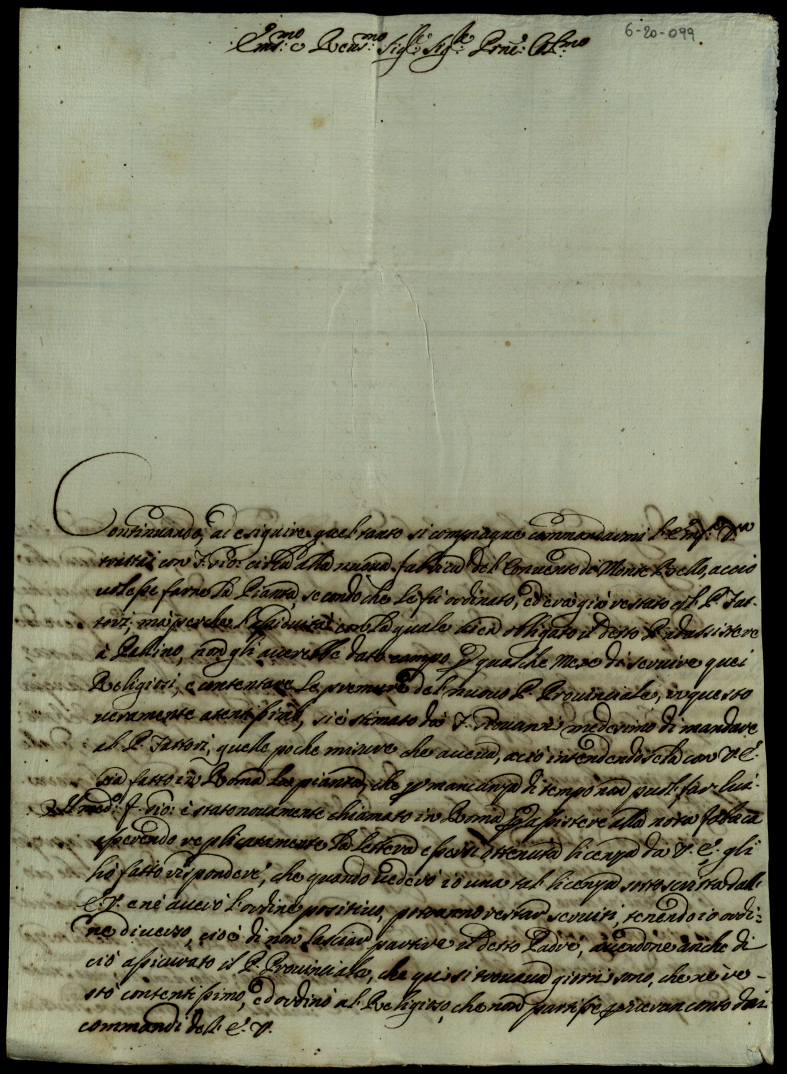 6-20-099
Em.mo e Reu.mo Sig.re Sig.re Prñe: Col.mo
Continuando, ad esiquire quel tanto si compiaque commandarmi l'Em.a V.ra
con F. Gio: circa alla nuoua fabrica del Conuento di Monte Bello, accio
uolesse farne la Pianta, secondo che le fù ordinato, ed era già restato col P. Sar-
tori; mà perche l'assiduità con la quale uien obligato il detto P. d'assistere
à Pallino, non gli auerebbe dato campo p qualche Mese di seruire quei
Religiosi, e contentare le premure del nuouo P. Prouinciale, in questo
ueramente atentissimo, si è stimato da F. Giouanni medesimo di mandare
al P. Sartori, quelle poche misure che aueua, acciò intendendosela con V. E.
sia fatto in Roma la pianta, che p mancanza di tempo non puol far lui.
Il med.o F. Gio: è stato nouamente chiamato in Roma p assistere alla nota fabrica
asserendo replicatamente la lettera essersi ottenuta licenza da V. E. gli
hò fatto rispondere, che quando uederò io una tal licenza sottoscritta dall'
E. V. e ne auerò l'ordine positiuo, potranno restar seruiti, tenendo io ordi-
ne diuerso, cioè di non lasciar partire il detto Padre, auendone anche di
ciò assicurato il P. Prouinciale, che qui si trouaua giorni sono, che ne re-
stò contentissimo, ed ordinò al Religioso, che non partisse p riceuan conto dai
commandi dell'E. V.